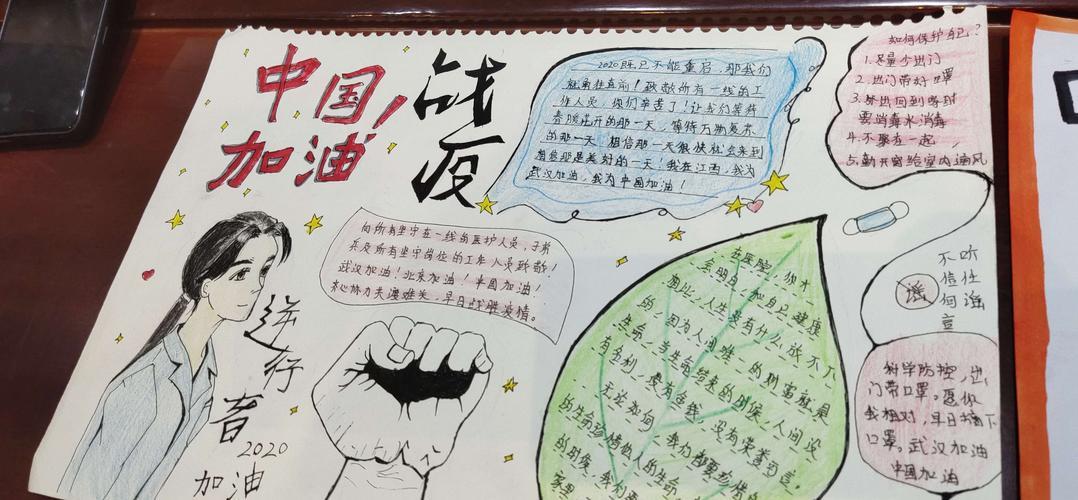 中国
加油
战
疫
2020既已不能重启,那我们
就勇往直前!致敬所有一线的工
作人员,你们辛苦了!让我们等待
春暖花开的那一天,等待万物复苏
的那一天 相信那一天很快就会来到
相信那是美好的一天!我在江西,我为
武汉加油,我为中国加油!
如何保护自己?
1.尽量少出门
2.出门带好口罩
3.外出回到家时
要消毒水消毒
4.不聚在一起,
5.勤开窗给室内通风
向所有坚守在一线的医护人员,子弟
兵及所有坚守岗位的工作人员致敬!
武汉加油!北京加油!中国加油!
齐心协力共渡难关,早日战胜疫情。
逆
行
者
2020
加油
在医院,你才
会明白,和自己健康
相比,人生没有什么放不下
的,因为人间难,的财富就是
生命,当生命结束的时候,人间没
有名利,没有金钱,没有荣誉可言。
无论如何,我们都要珍惜自
的生命珍惜他人的生命,
的时候,我们要
家里
谣
不听
信任
何谣
言
科学防控,出
门带口罩。愿你
我相对,早日摘下
口罩。武汉加油
中国加油